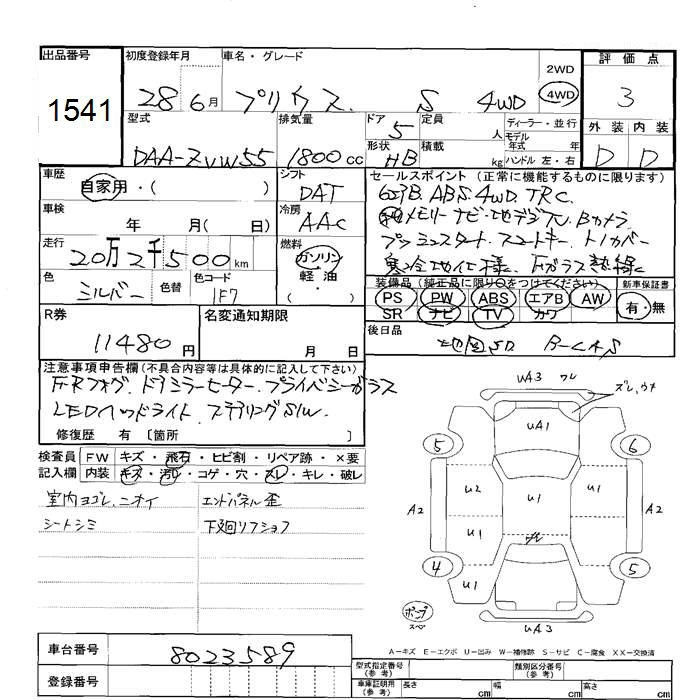 出品番号
1541
初度登録年月
28 6月
車名・グレード
プリウス S 4WD
2WD
4WD
評価点
3
型式
DAA-ZVW55
排気量
1800 cc
ドア
5
定員
人
形状
HB
積載
kg
ディーラー・並行
モデル
年式 年
ハンドル 左・右
外装 内装
D D
車歴
自家用・( )
シフト
DAT
車検
年 月( 日)
冷房
AAC
走行
20万2千500km
燃料
ガソリン
軽油
・( )
色
シルバー
色替
色コード
1F7
R券
11480円
名変通知期限
月 日
セールスポイント (正常に機能するものに限ります)
ABS 4WD TRC
メモリーナビ・地デジTV Bカメラ
プッシュスタート スマートキー トノカバー
寒冷地仕様 Fガラス熱線
装備品 (純正品に限り○をつけてください)
PS PW ABS エアB AW
SR ナビ TV カワ
新車保証書
有・無
後日品
地図SD B-CAS
注意事項申告欄(不具合内容等は具体的に記入して下さい)
F・Rフォグ ドアミラーヒーター プライバシーガラス
LEDヘッドライト ステアリングSW
修復歴 有 〔箇所 〕
検査員
記入欄
FW キズ・飛石・ヒビ割・リペア跡・×要
内装 キズ・汚れ・コゲ・穴・スレ・キレ・破レ
室内ヨゴレ、ニオイ エンドパネル歪
シートシミ 下廻リフショフ
UA3 ワレ
ズレ、ウキ
UA1
5 6
U2 U1 U1
A2 A2
U1 U1
4 5
U1
UA3
A－キズ E－エクボ U－凹み W－補修跡 S－サビ C－腐食 XX－交換済
車台番号
8023589
登録番号
型式指定番号
(参考)
類別区分番号
(参考)
車庫証明用
(参考)
長さ cm
幅 cm
高さ cm